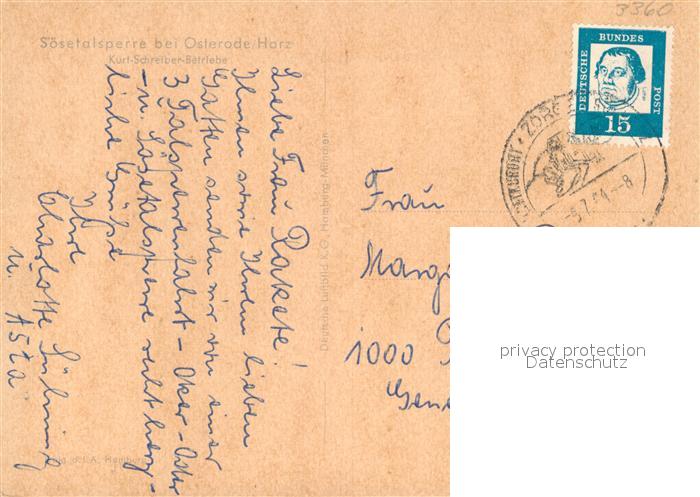 3360
Sösetalsperre bei Osterode/Harz
Kurt-Schreiber-Betriebe
Liebe Frau Rakete!
Ihnen sowie Ihrem lieben
Gatten senden wir von einer
3 Talsperrenfahrt - Oker - Oder
- u. Sösetalsperre recht herz-
liche Grüße
Ihre
Charlotte
u.
Deutsche Luftbild K.G. Hamburg
DEUTSCHE BUNDESPOST
15
ZORGE
5.7.64-8
Frau
1000
privacy protection
Datenschutz